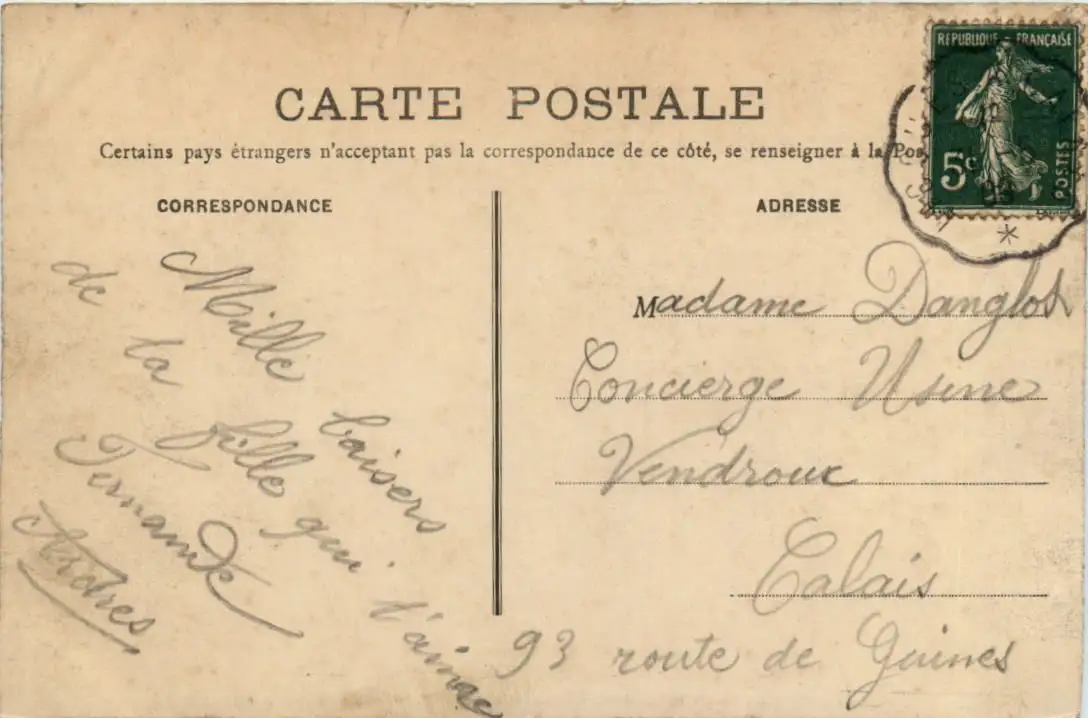 CARTE POSTALE
Certains pays étrangers n'acceptant pas la correspondance de ce côté, se renseigner à la Pos
RÉPUBLIQUE FRANÇAISE
5c
POSTES
CORRESPONDANCE
Mille baisers
de la fille qui t'aime
Fernande
Ardres
ADRESSE
Madame Danglot
Concierge Usine
Vendroux
Calais
93 route de Guines